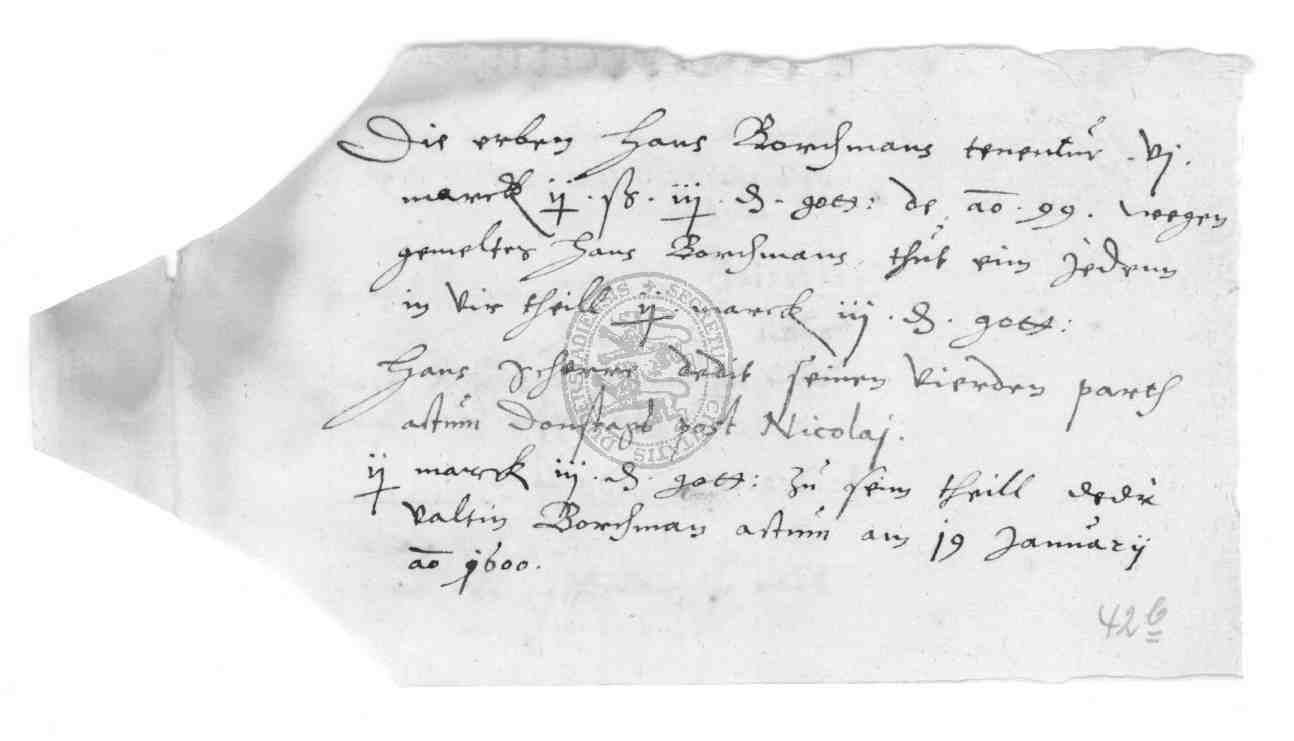 Die erben Hans Borchmans tenentur . vj .
marck ij . ß . iij . d . gott : de ao . 99 . wegen
gemeltes Hans Borchmans thut eim jedenn
in vir theill ij marck iij . d . gott :
Hans Scherre dedit seinen vierden parth
actum Donstags post Nicolaj .
ij marck iij . d . gott : zu seim theill dedit
Valtin Borchman actum am 19 Januarij
ao 1600 .
SECRETUM CIVITATIS DUDERSTADIENSIS
42 b